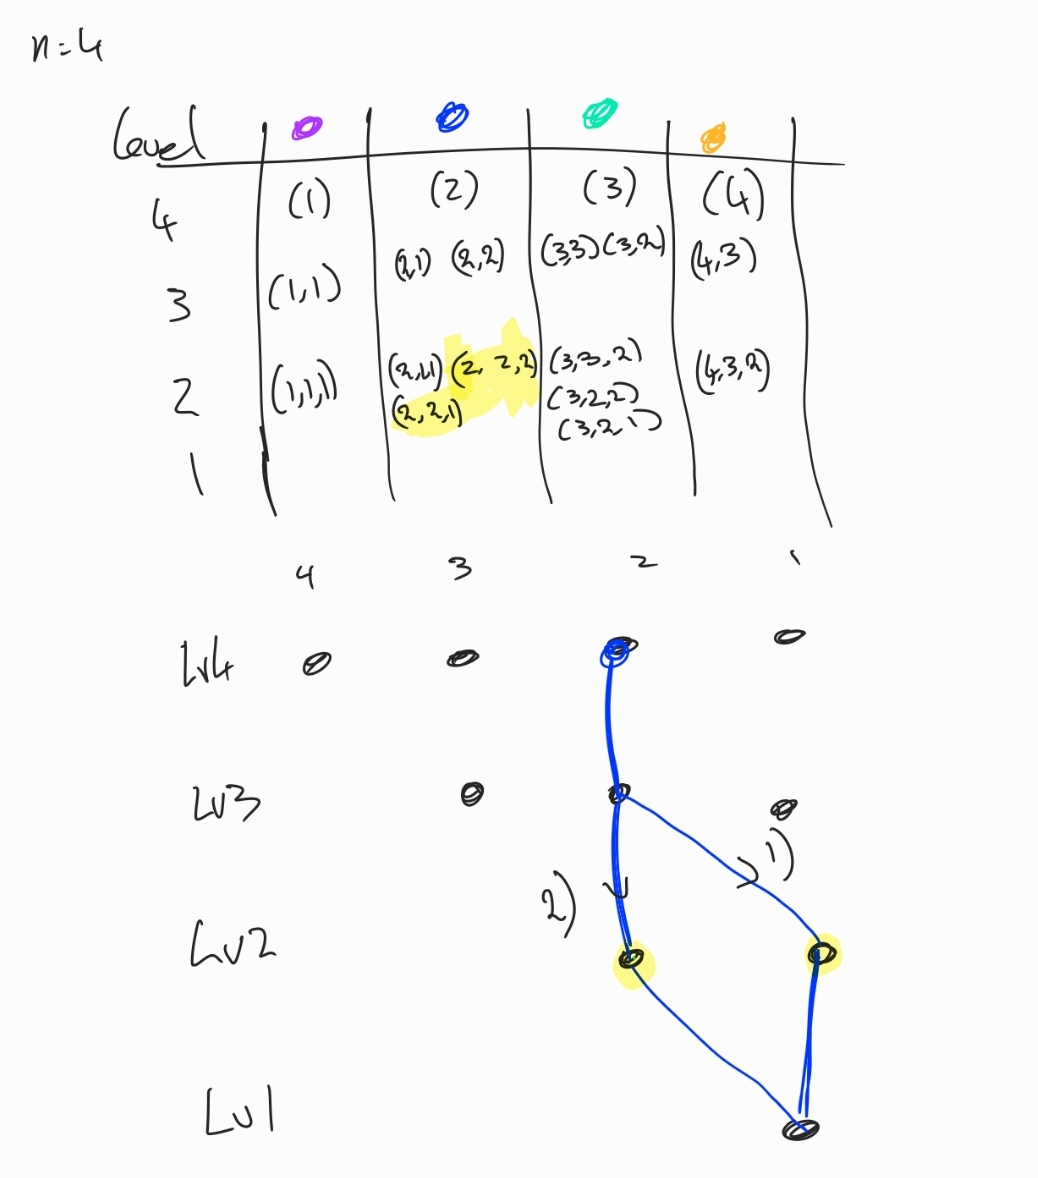 n=4
Level
4 (1) (2) (3) (4)
3 (1,1) (2,1) (2,2) (3,3) (3,2) (4,3)
2 (1,1,1) (2,1,1) (2, 2,2) (3,3,2) (4,3,2)
(2,2,1) (3,2,2)
(3,2,1)
1
4 3 2 1
Lv4
Lv3
1)
2)
Lv2
Lv1